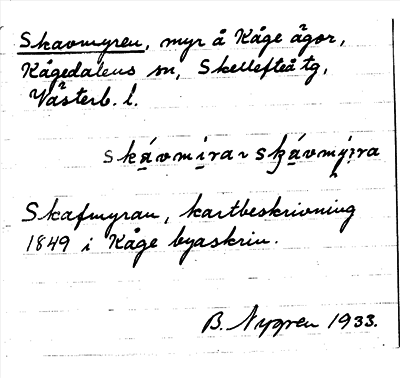 Skavmyren, myr å Kåge ägor,
Kågedalens sn, Skellefteå tg,
Västerb. l.
skávmìra ~ skávmýìra
Skafmyran, kartbeskrivning
1849 i Kåge byaskrin.
B. Nygren 1933.